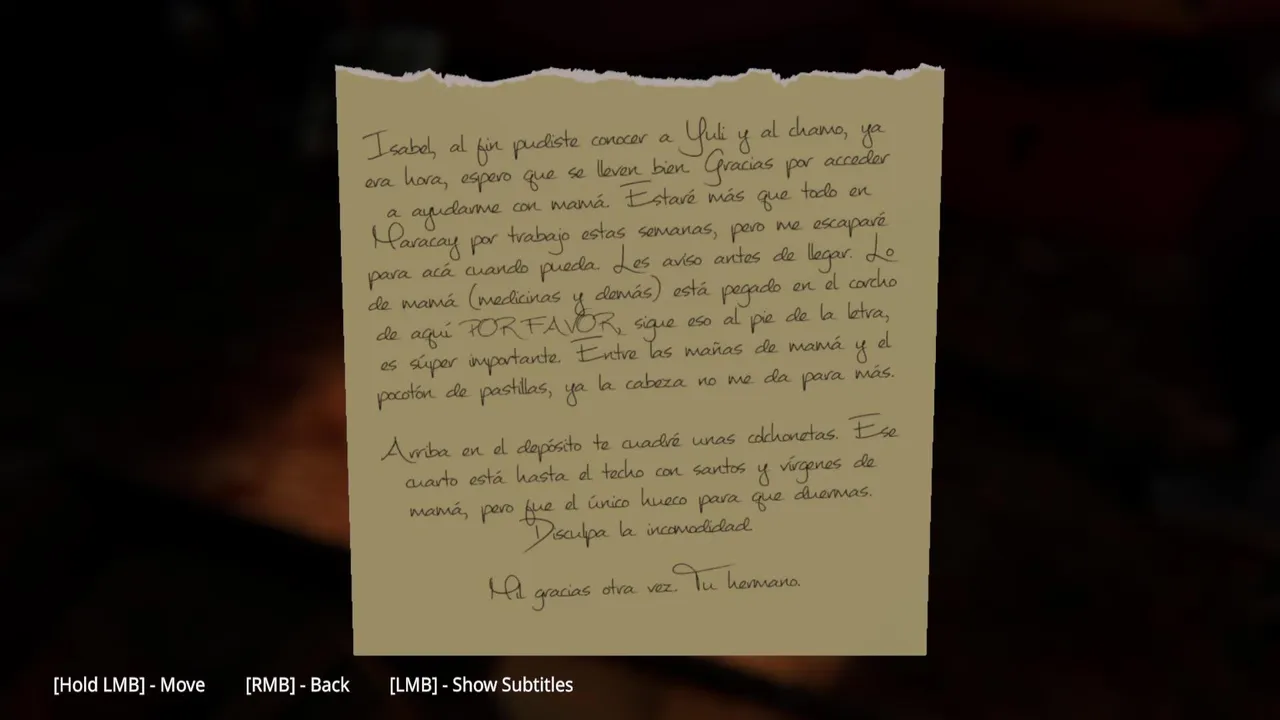 Isabel, al fin pudiste conocer a Yuli y al chamo, ya
era hora, espero que se lleven bien Gracias por acceder
a ayudarme con mamá. Estaré más que todo en
Maracay por trabajo estas semanas, pero me escaparé
para acá cuando pueda. Les aviso antes de llegar. Lo
de mamá (medicinas y demás) está pegado en el corcho
de aquí POR FAVOR, sigue eso al pie de la letra,
es súper importante. Entre las mañas de mamá y el
pocotón de pastillas, ya la cabeza no me da para más.
Arriba en el depósito te cuadré unas colchonetas. Ese
cuarto está hasta el techo con santos y vírgenes de
mamá, pero fue el único hueco para que duermas.
Disculpa la incomodidad
Mil gracias otra vez. Tu hermano.
[Hold LMB] - Move [RMB] - Back [LMB] - Show Subtitles